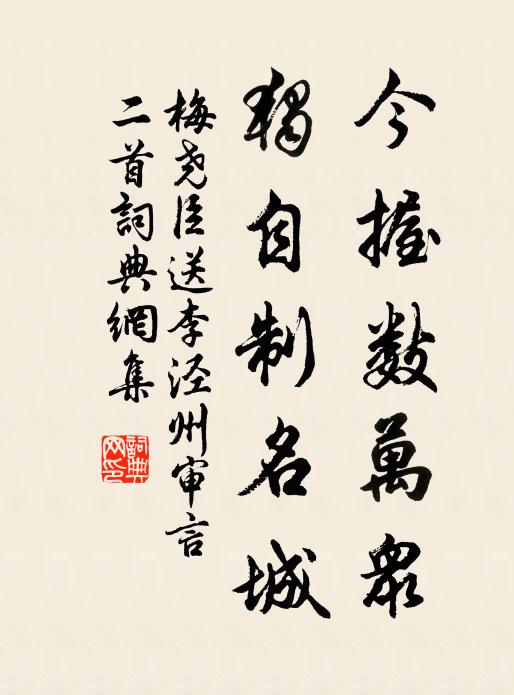 今握数萬眾
獨自制名城
梅尧臣送李泾州审言
二首詞典網集
詞典网印